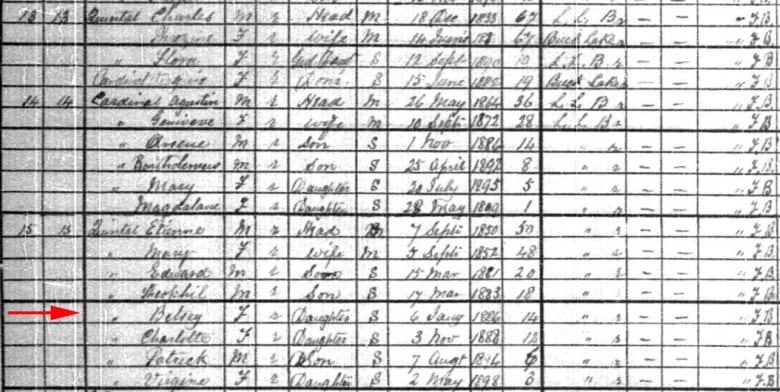 13 13 Quintal Charles M r Head M 18 Dec 1833 67 L. L. B r — — " F B
" F r Wife M 14 67 Buck Lake r — — " F B
" Flora F r S 12 Sept L. L. B r — — " F B
Cardinal F r S 15 June 19 Buck Lake r — — " F B
14 14 Cardinal Agustin M r Head M 26 May 1864 36 L. L. B r — — " F B
" Genivieve F r Wife M 10 Sept 1872 28 L. L. B r — — " F B
" M r Son S 1 Nov 1886 14 " r — — " F B
" M r Son S 25 April 1892 8 " r — — " F B
" Mary F r Daughter S 20 July 1895 5 " r — — " F B
" Magdalane F r Daughter S 28 May 1 " r — — " F B
15 15 Quintal Etienne M r Head M 7 Sept 1850 50 " r — — " F B
" Mary F r Wife M 5 Sept 1852 48 " r — — " F B
" Edward M r Son S 15 Mar 1881 20 " r — — " F B
" M r Son S 17 Mar 1883 18 " r — — " F B
" Betsey F r Daughter S 6 Jany 1886 14 " r — — " F B
" Charlotte F r Daughter S 3 Nov 1888 12 " r — — " F B
" Patrick M r Son S 7 Augt " r — — " F B
" Virginie F r Daughter S 2 May 1898 3 " r — — " F B